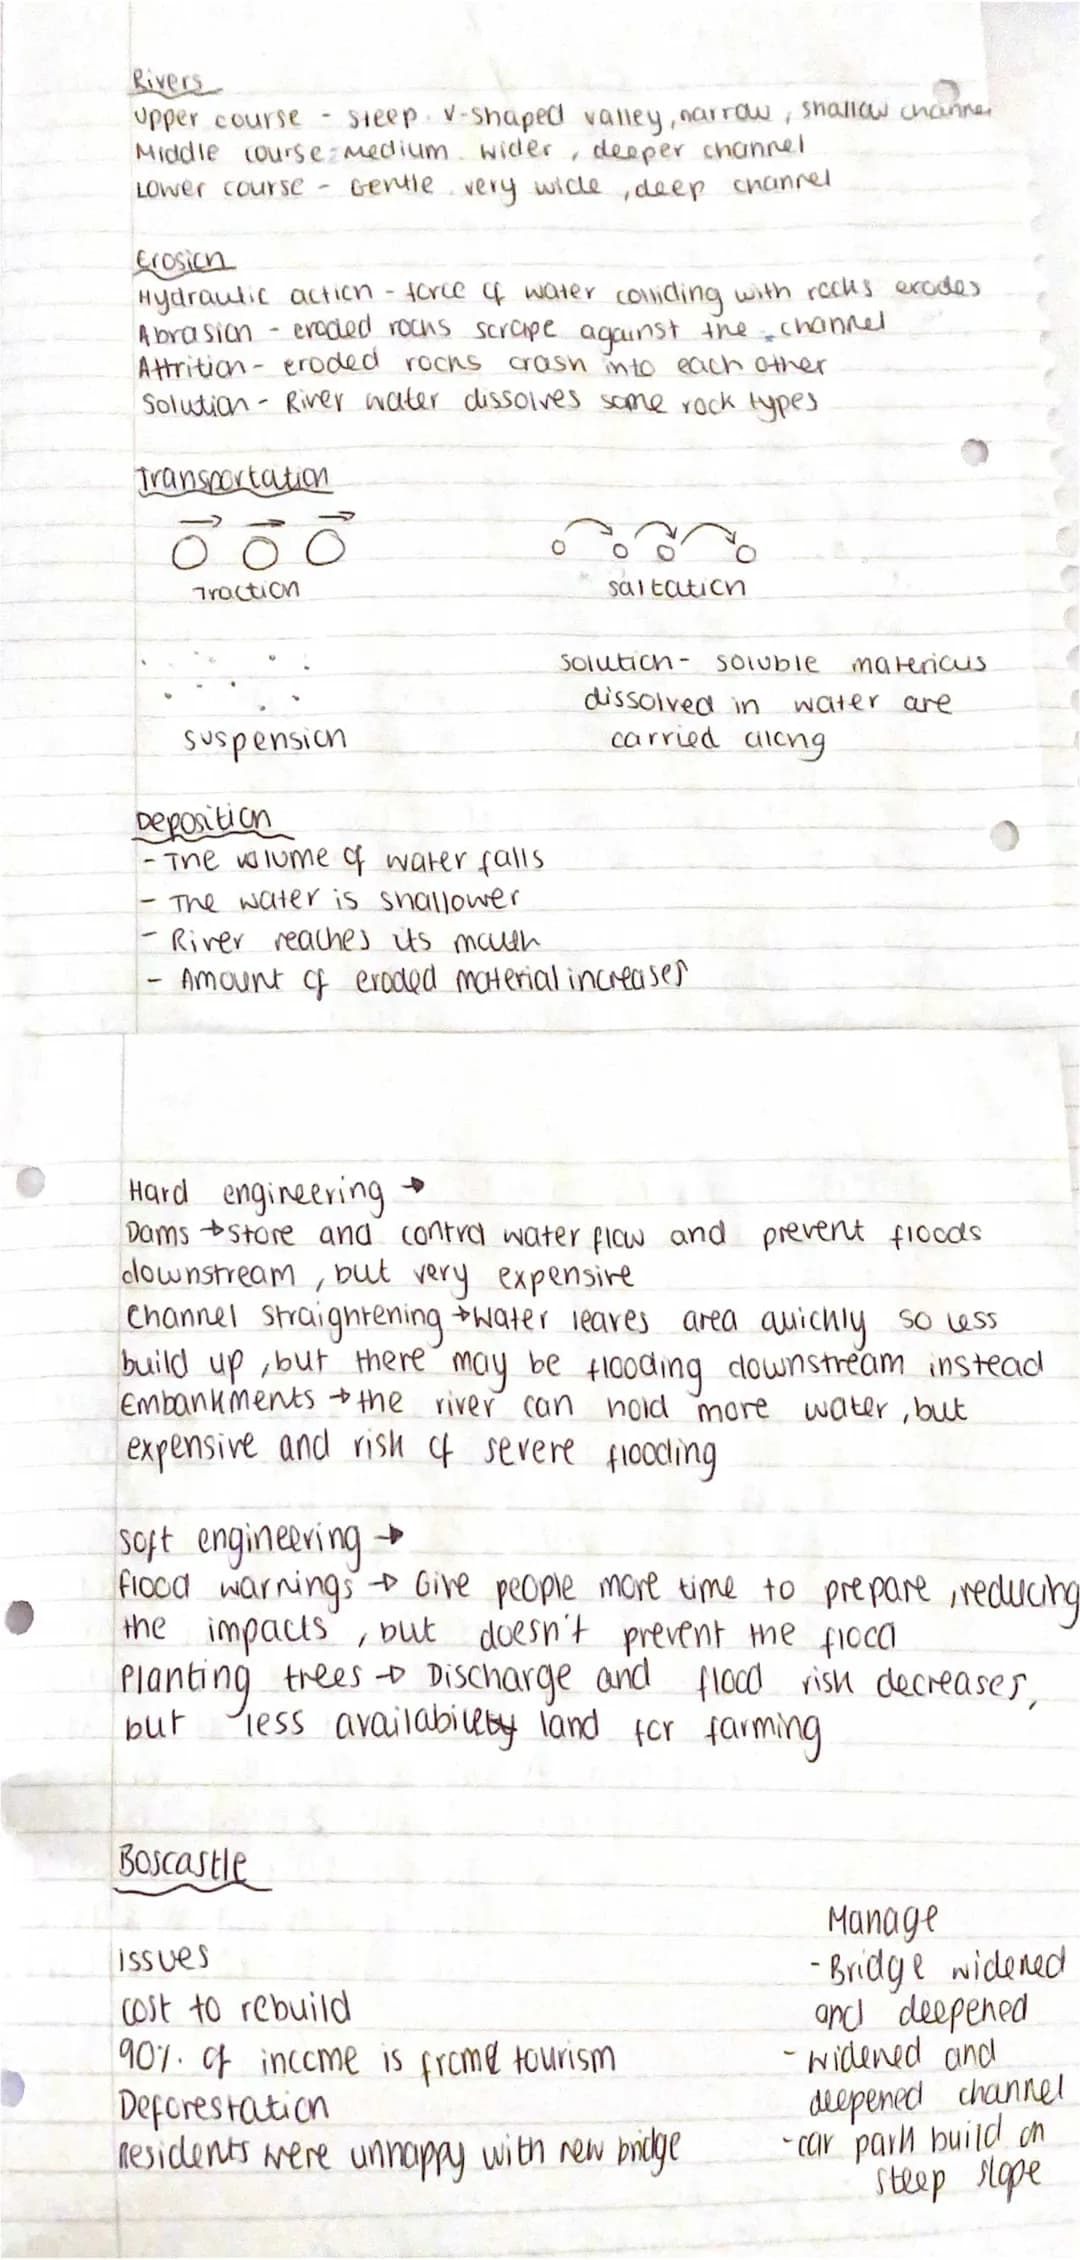 Rivers
Upper course - steep. V-shaped valley, narrow, shallow channel
Middle course - Medium. wider, deeper channel
Lower course - Gentle. very wide, deep channel
Erosion
Hydraulic action - force of water colliding with rocks erodes
Abrasion - eroded rocks scrape against the channel
Attrition - eroded rocks crash into each other
Solution - River water dissolves some rock types
Transportation
Traction
saltation
suspension
solution - soluble materials
dissolved in water are
carried along
Deposition
- The volume of water falls
- The water is shallower
- River reaches its mouth
- Amount of eroded material increases
Hard engineering →
Dams → store and control water flow and prevent floods
downstream, but very expensive
Channel straightening → Water leaves area quickly so less
build up, but there may be flooding downstream instead
Embankments → the river can hold more water, but
expensive and risk of severe flooding
soft engineering →
flood warnings → Give people more time to prepare, reducing
the impacts, but doesn't prevent the flood
Planting trees → Discharge and flood risk decreases,
but less availability land for farming
Boscastle
Manage
issues
- Bridge widened
cost to rebuild
and deepened
90% of income is from tourism
- widened and
Deforestation
deepened channel
Residents were unhappy with new bridge
- car park build on
steep slope